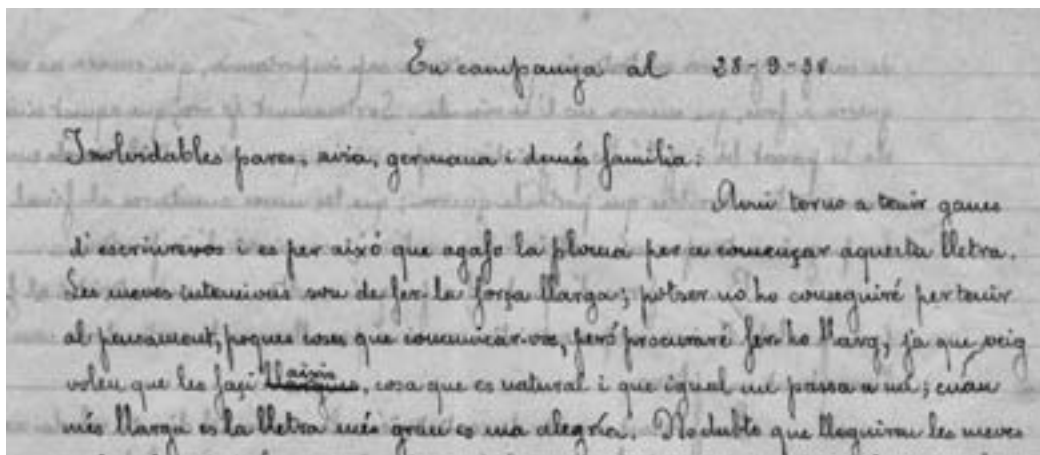 En campanya al 28-9-38
Inolvidables pares, avia, germana i demés família:
Avui torno a tenir ganes
d'escriurevos i es per aixó que agafo la ploma per a començar aquesta lletra.
Les meves intencions son de fer-la força llarga; potser no ho conseguiré per tenir
al pensament, poques coses que comunicar-vos, peró procuraré fer-ho llarg, ja que veig
voleu que les façi aixis, cosa que es natural i que igual me passa a mi; cuan
més llarga es la lletra més gran es ma alegría. No dubto que lleguireu les meves